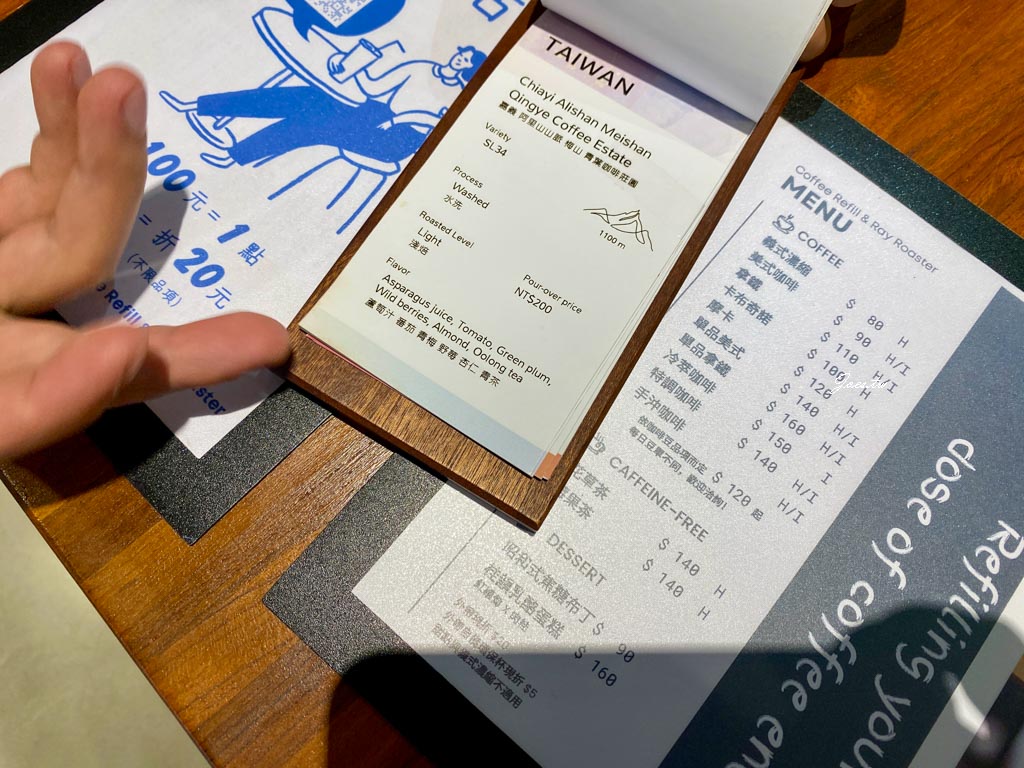 100元 = 1點
= 折20元
(不限品項)
TAIWAN
Chiayi Alishan Meishan
Qingye Coffee Estate
嘉義 阿里山山脈 梅山 青葉咖啡莊園
Variety
SL34
Process
Washed
水洗
1100 m
Roasted Level
Light
淺焙
Pour-over price
NT$200
Flavor
Asparagus juice, Tomato, Green plum,
Wild berries, Almond, Oolong tea
蘆筍汁 番茄 青梅 野莓 杏仁 青茶
Coffee Refill & Ray Roaster
MENU
COFFEE
義式濃縮 $ 80 H
美式咖啡 $ 90 H/I
拿鐵 $ 110 H/I
卡布奇諾 $ 100 H
摩卡 $ 120 H
單品美式 $ 140 H/I
單品拿鐵 $ 160 H/I
冷萃咖啡 $ 150 I
特調咖啡 $ 140 H/I
手沖咖啡 $ 120 起
依咖啡豆品項而定
每日豆單不同，歡迎洽詢!
CAFFEINE-FREE
草茶 $ 140 H
果茶 $ 140 H
DESSERT
昭和式焦糖布丁 $ 90
$ 160
Refilling your
dose of coffee